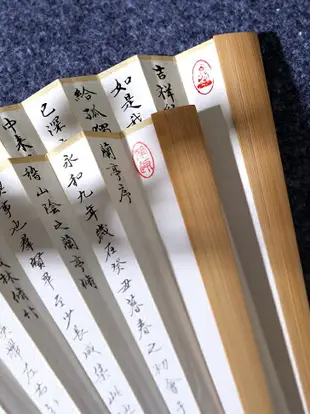 吉祥
如是我
給孤獨
已深
中來
蘭亭序
永和九年歲在癸丑暮春之初會
稽山陰之蘭亭脩
事也羣賢畢至少長咸集此
林脩竹
帶左右引